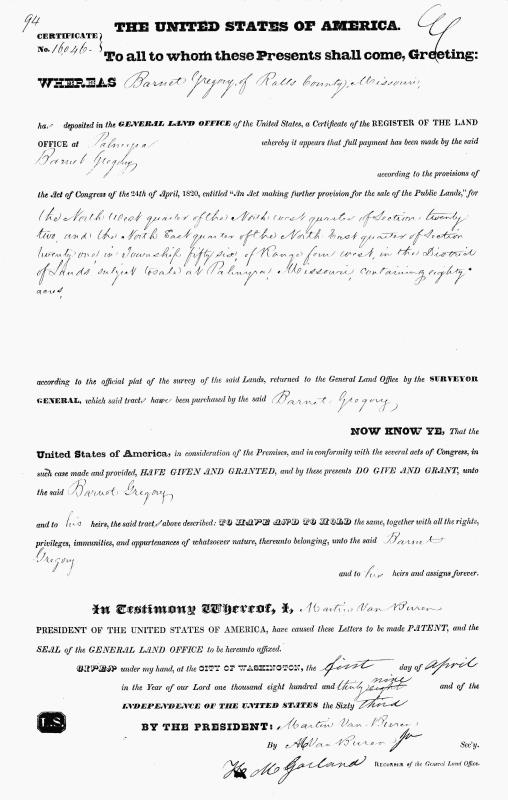 94
THE UNITED STATES OF AMERICA.
CERTIFICATE
No. 16046.
To all to whom these Presents shall come, Greeting:
WHEREAS Barnet Gregory, of Ralls County, Missouri,
ha deposited in the GENERAL LAND OFFICE of the United States, a Certificate of the REGISTER OF THE LAND
OFFICE at Palmyra whereby it appears that full payment has been made by the said
Barnet Gregory,
according to the provisions of
the Act of Congress of the 24th of April, 1820, entitled "An Act making further provision for the sale of the Public Lands," for
the North West quarter of the North West quarter of Section twenty
two, and the North East quarter of the North East quarter of Section
twenty one, in Township fifty six, of Range four west, in the District
of Lands subject to sale at Palmyra, Missouri, containing eighty
acres,
according to the official plat of the survey of the said Lands, returned to the General Land Office by the SURVEYOR
GENERAL, which said tracts have been purchased by the said Barnet Gregory,
NOW KNOW YE, That the
United States of America, in consideration of the Premises, and in conformity with the several acts of Congress, in
such case made and provided, HAVE GIVEN AND GRANTED, and by these presents DO GIVE AND GRANT, unto
the said Barnet Gregory,
and to his heirs, the said tracts above described: TO HAVE AND TO HOLD the same, together with all the rights,
privileges, immunities, and appurtenances of whatsoever nature, thereunto belonging, unto the said Barnet
Gregory
and to his heirs and assigns forever.
In Testimony Whereof, I, Martin Van Buren
PRESIDENT OF THE UNITED STATES OF AMERICA, have caused these Letters to be made PATENT, and the
SEAL of the GENERAL LAND OFFICE to be hereunto affixed.
GIVEN under my hand, at the CITY OF WASHINGTON, the first day of April
in the Year of our Lord one thousand eight hundred and thirty nine and of the
INDEPENDENCE OF THE UNITED STATES the Sixty third
L.S.
BY THE PRESIDENT: Martin Van Buren,
By M Van Buren, Jr Sec'y.
RECORDER of the General Land Office.